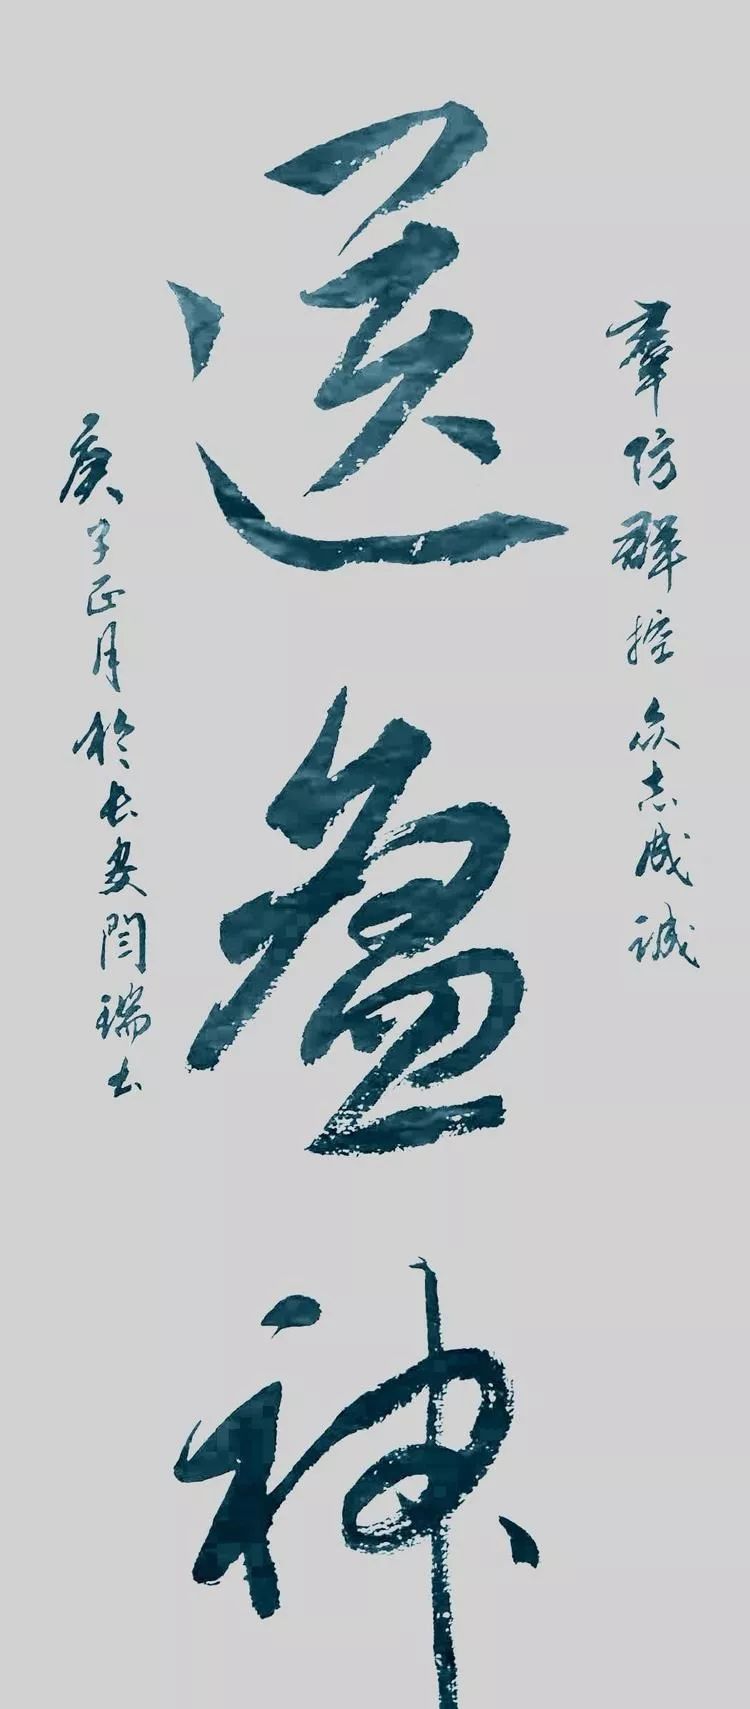 羣防群控众志成诚
送瘟神
庚子正月於长安閆瑞书